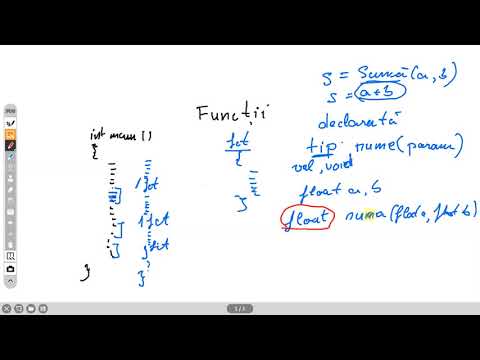 Funcții
int main ()
{
1 fct
1 fct
fct
}
}
?
fct
{
}
s = Sumă(a, b)
s = a+b
declarată
tip nume(param)
val, void
float a, b
float suma(float a, float b)
1 / 1